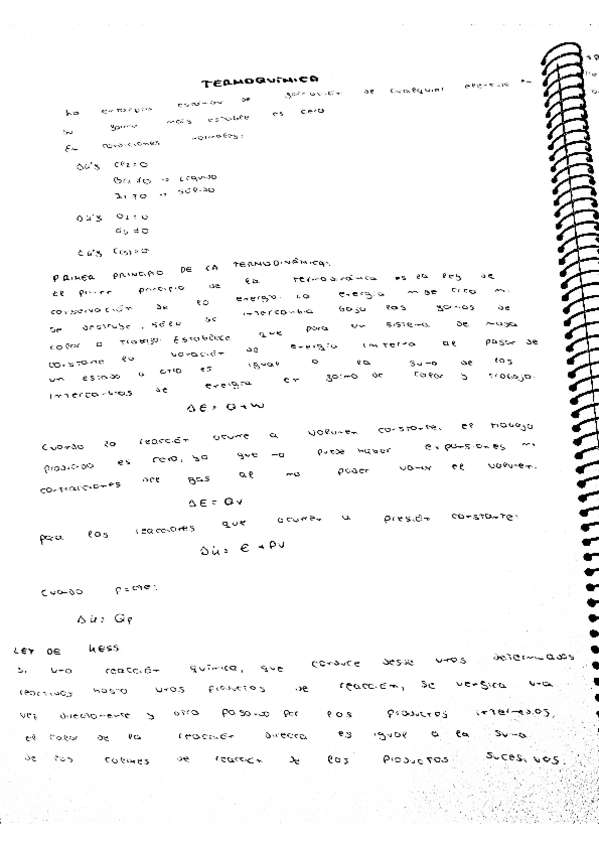 TERMOQUÍMICA
La entalpía estándar de formación de cualquier
su forma más estable es cero
En condiciones normales:
Cl2=0
Br2≠0 → Líquido
I2≠0 → Sólido
O2=0
O3≠0
PRIMER PRINCIPIO DE LA TERMODINÁMICA:
El primer principio de la termodinámica es la ley de
conservación de la energía. La energía ni se crea ni
se destruye, sólo se intercambia bajo las formas de
calor o trabajo. Establece que para un sistema de masa
constante la variación de energía interna al pasar de
un estado a otro es igual a la suma de los
intercambios de energía en forma de calor y trabajo.
ΔE = Q+W
Cuando la reacción ocurre a volumen constante, el trabajo
producido es cero, ya que no puede haber expansiones ni
contracciones del gas al no poder variar el volumen.
ΔE = Qv
para las reacciones que ocurren a presión constante:
Cuando p=cte:
LEY DE HESS
Si una reacción química, que conduce desde unos determinados
reactivos hasta unos productos de reacción, se verifica una
vez directamente y otra pasando por los productos intermedios,
el calor de la reacción directa es igual a la suma
de los calores de reacción de los productos sucesivos.